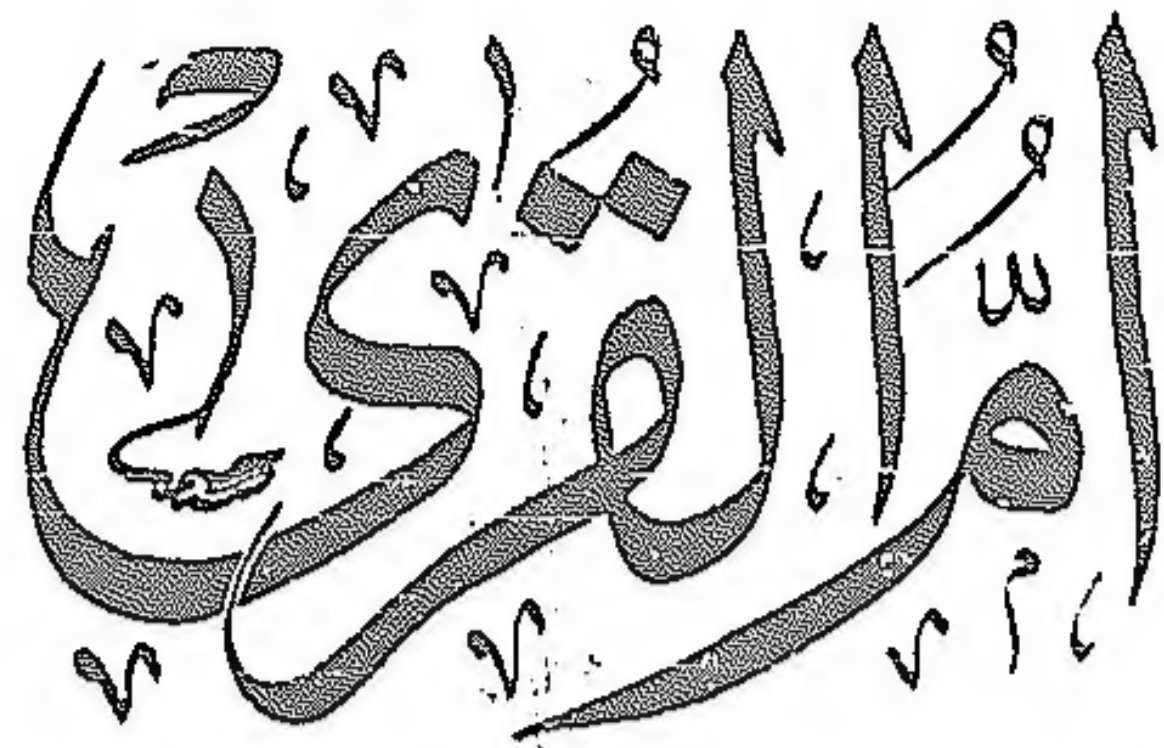 اُمُّ القُرىٰ